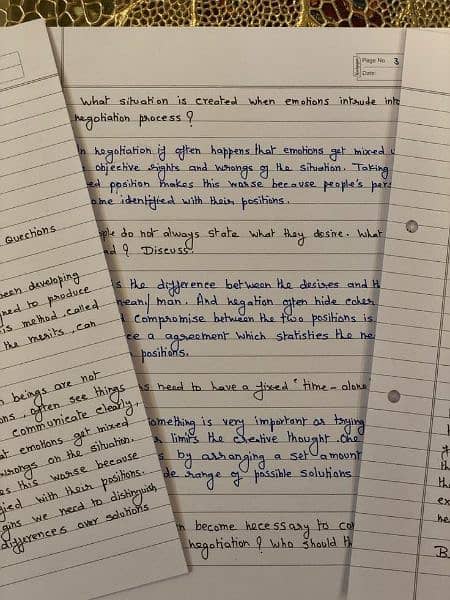 Page No. 3
Date:
What situation is created when emotions intrude into
negotiation process ?
In hegotiation it often happens that emotions get mixed
objective rights and wrongs of the situation. Taking
position makes this worse because people's
identified with their positions.
do not always state what they desire. What
? Discuss.
the difference between the desires and
mean/ man. And negation often hide
compromise between the two positions is
a agreement which statisties the
positions.
need to have a fixed "time - alone
something is very important or trying
limits the creative thought. One
by arranging a set amount
range of possible solutions
become hecessary to
negotiation ? Who should
Questions
been developing
to produce
method, called
the merits, can
beings are not
often see things
communicate clearly,
emotions get mixed
wrongs on the situation.
this worse because
with their positions.
we need to distinguish
differences over solutions